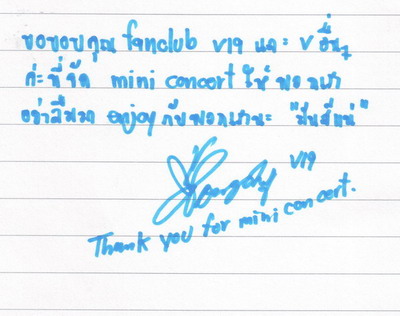 ขอขอบคุณ fanclub V19 และ V อื่นๆ
ค่ะที่จัด mini concert ให้พวกเรา
อย่าลืมมา enjoy กับพวกเรานะ "มันส์แน่"
V19
Thank you for mini concert.